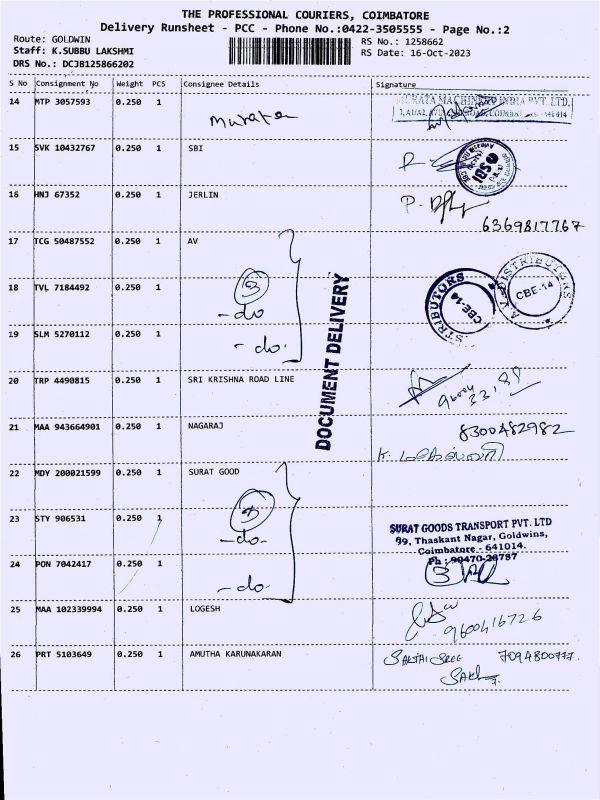 THE PROFESSIONAL COURIERS, COIMBATORE
Delivery Runsheet - PCC - Phone No.:0422-3505555 - Page No.:2
Route: GOLDWIN
Staff: K.SUBBU LAKSHMI
DRS No.: DCJB125866202
RS No.: 1258662
RS Date: 16-Oct-2023
S No Consignment No Weight PCS Consignee Details Signature
14 MTP 3057593 0.250 1
Murata
MURATA MACHINERY INDIA PVT. LTD.
15 SVK 10432767 0.250 1 SBI
SBI
16 HNJ 67352 0.250 1 JERLIN
6369817767
17 TCG 50487552 0.250 1 AV
18 TVL 7184492 0.250 1
3
-do
A.V. DISTRIBUTORS
CBE-14
DISTRIBUTORS
CBE-14
19 SLM 5270112 0.250 1
-do.
DOCUMENT DELIVERY
20 TRP 4490815 0.250 1 SRI KRISHNA ROAD LINE
21 MAA 943664901 0.250 1 NAGARAJ
8300482982
22 MDY 200021599 0.250 1 SURAT GOOD
23 STY 906531 0.250 1
-do-
SURAT GOODS TRANSPORT PVT. LTD
99, Thaskant Nagar, Goldwins,
Coimbatore - 641014.
Ph : 90470-26787
24 PON 7042417 0.250 1
-do-
25 MAA 102339994 0.250 1 LOGESH
9600416726
26 PRT 5103649 0.250 1 AMUTHA KARUNAKARAN
SAKTHI SREE 7094800777.